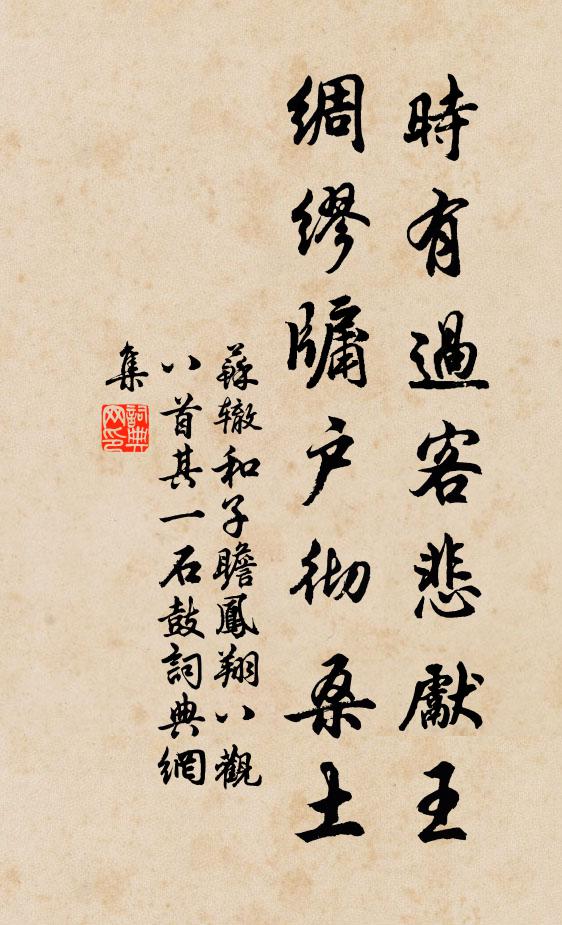 時有過客悲獻王
綢繆牖户彻桑土
蘇辙和子瞻鳳翔八觀
八首其一石鼓詞典網
集
詞典网印